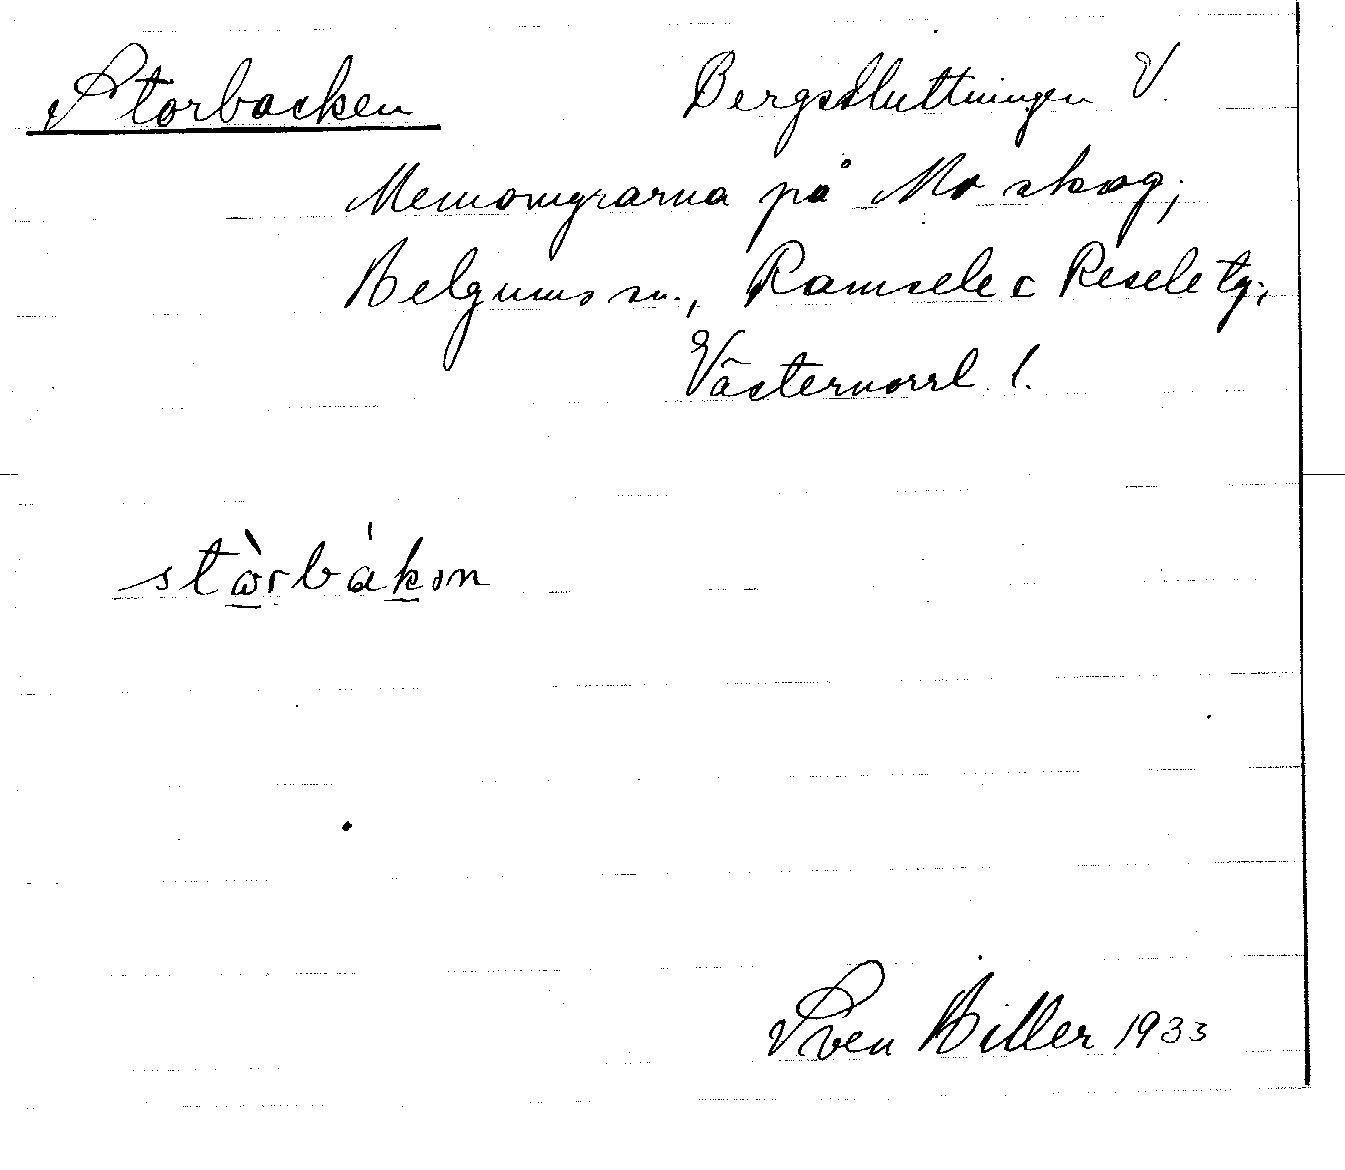 Storbacken Bergsluttningen V.
Memomyrarna på Mo skog,
Helgums sn., Ramsele o Resele tg.,
Västernorrl l.
stàrbákɘn
Sven Hiller 1933